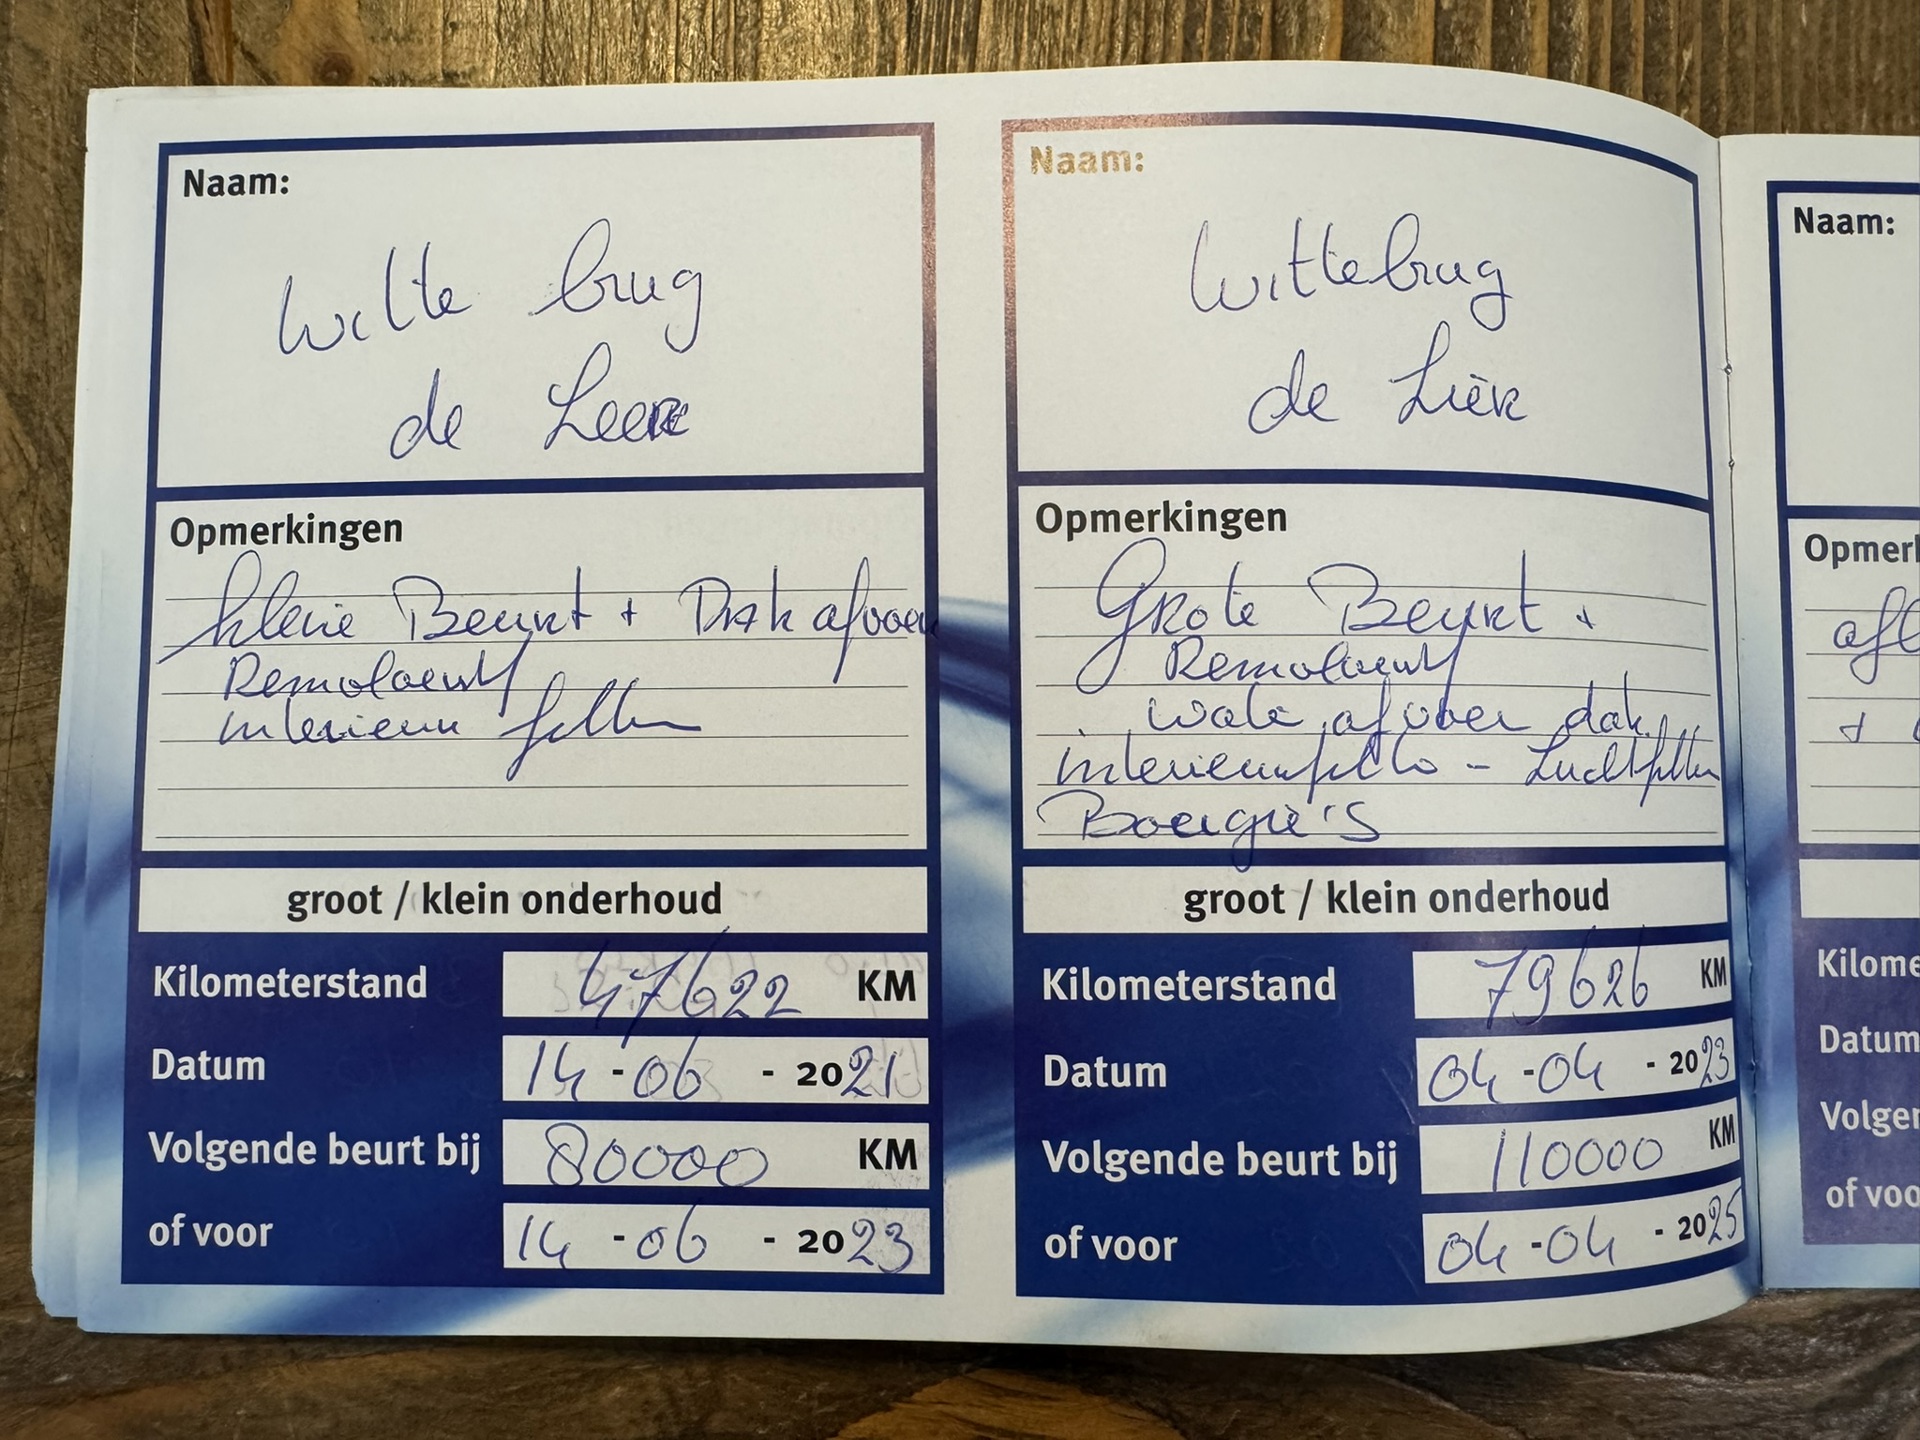 Naam:
Witte brug
de Leer
Opmerkingen
kleine Beurt + Dak afvoer
Remvloeistof
interieur filter
groot / klein onderhoud
Kilometerstand 47622 KM
Datum 14 - 06 - 2021
Volgende beurt bij 80000 KM
of voor 14 - 06 - 2023
Naam:
Wittebrug
de Lier
Opmerkingen
Grote Beurt +
Remvloeistof
water afvoer dak
interieurfilter - Luchtfilter
Boegie's
groot / klein onderhoud
Kilometerstand 79626 KM
Datum 04 - 04 - 2023
Volgende beurt bij 110000 KM
of voor 04 - 04 - 2025
Naam:
Opmer
afl
+
Kilome
Datum
Volger
of voo